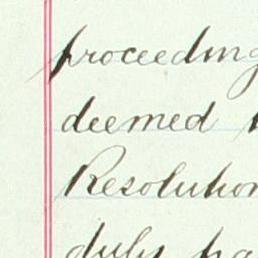 proceeding
deemed
Resolution
duly